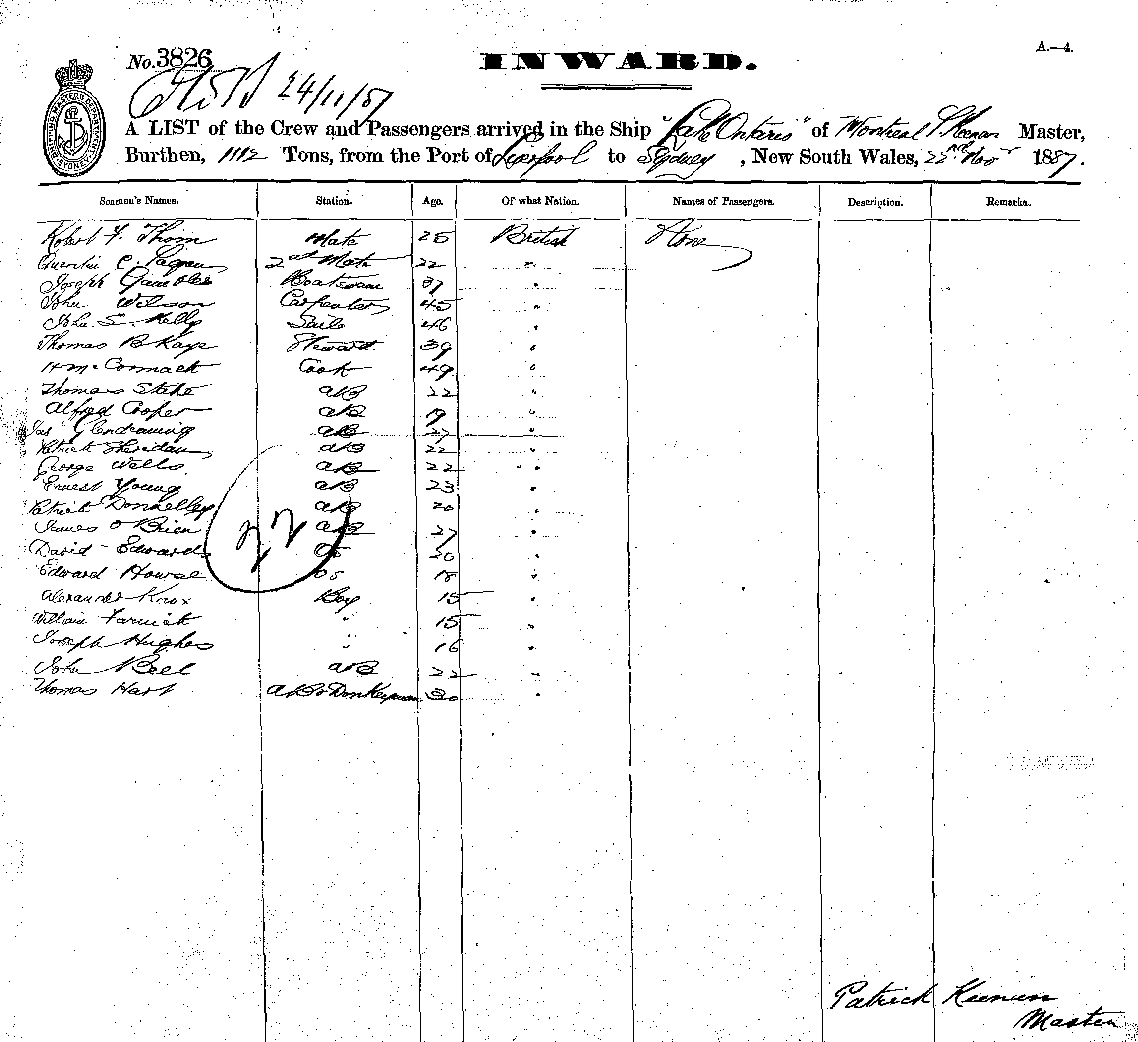 No. 3826 INWARD. A.—4.
24/11/87
A LIST of the Crew and Passengers arrived in the Ship "Lake Ontario" of Montreal P. Keenan Master,
Burthen, 1112 Tons, from the Port of Liverpool to Sydney, New South Wales, 22nd Nov 1887.
Seamen's Names. Station. Age. Of what Nation. Names of Passengers. Description. Remarks.
Robert F. Thom Mate 25 British
Quentin C. 2nd Mate 22 "
Joseph Gambles Boatswain 37 "
John Wilson Carpenter 45 "
John S. Kelly Sails 46 "
Thomas B Kaye Steward 39 "
H McCormack Cook 49 "
Thomas AB 22 "
Alfred Cooper AB 19 "
Jas Glendinning AB 27 "
Patrick Sheridan AB 22 "
George Wells AB 22 "
Ernest Young AB 23 "
Patrick Donnelley AB 20 "
James O Brien AB 27 "
22
David Edwards OS 20 "
Edward Howse OS 18 "
Alexander Knox Boy 15 "
William " 15 "
Joseph Hughes " 16 "
John Bell AB 22 "
Thomas Hart AB & Donkeyman 30 "
Patrick Keenan
Master